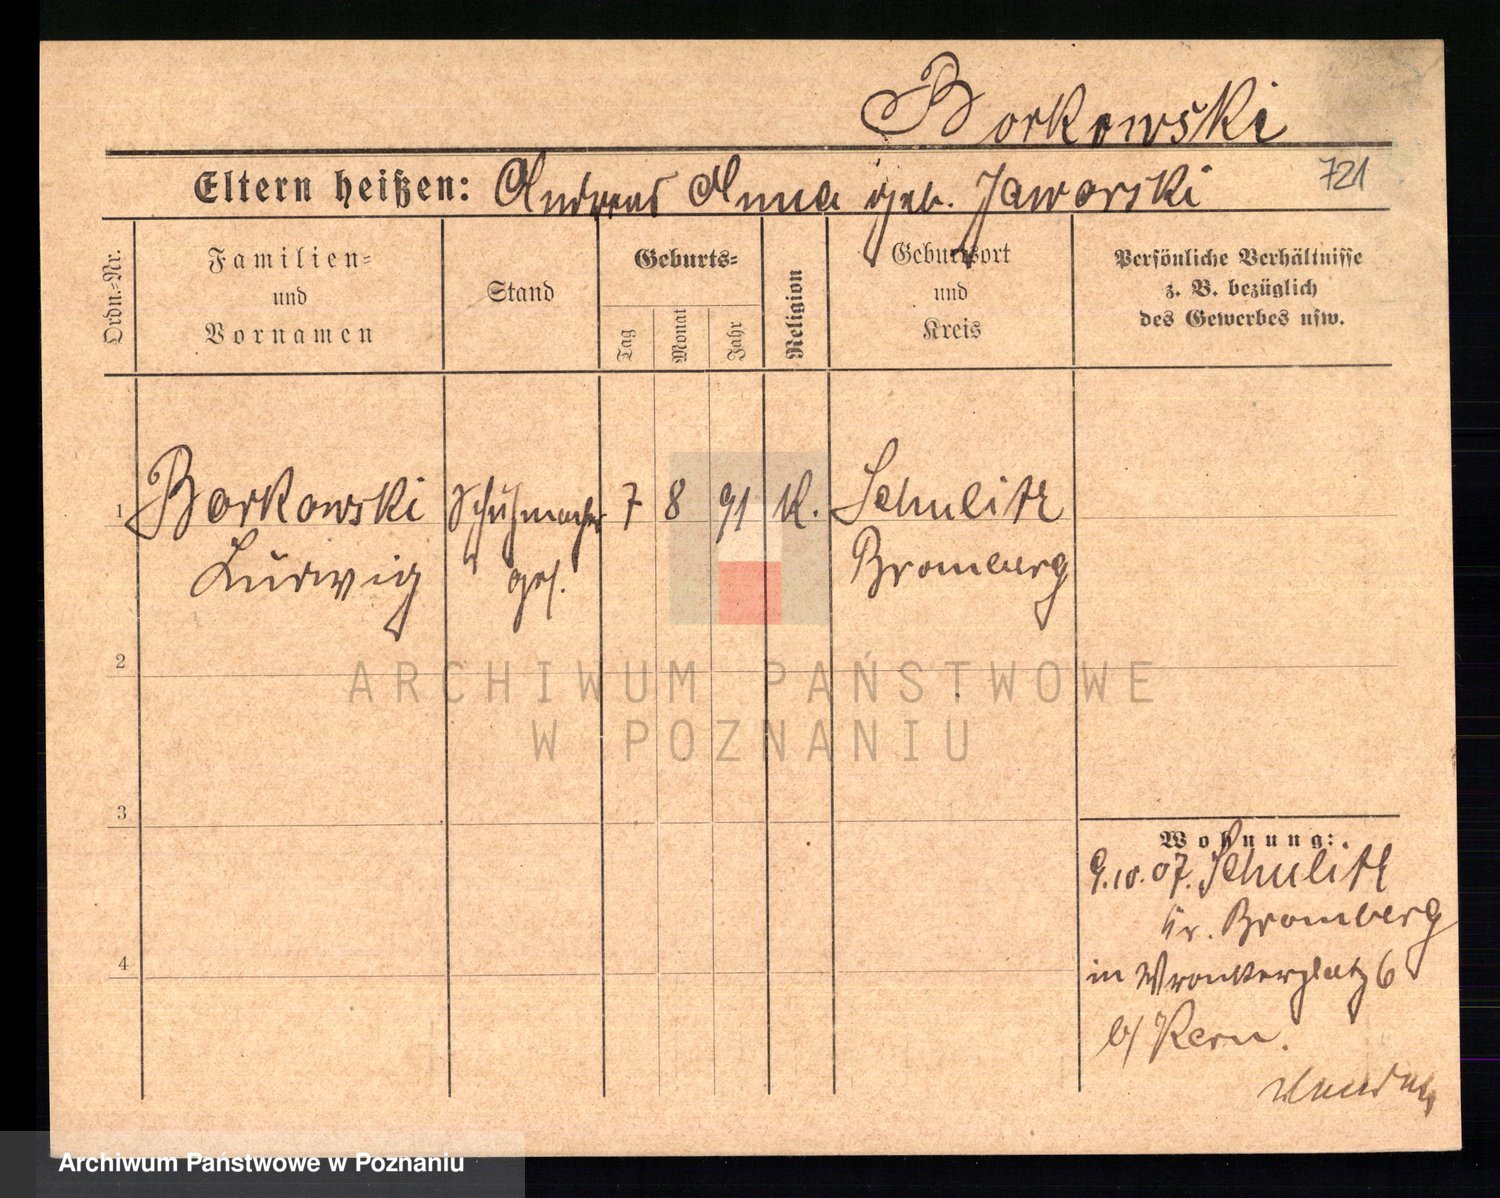 Borkowski
Eltern heißen: Andreas Anna geb. Jaworski 721
Ordn.-Nr.
Familien-
und
Vornamen
Stand
Geburts-
Tag
Monat
Jahr
Religion
Geburtsort
und
Kreis
Persönliche Verhältnisse
z. B. bezüglich
des Gewerbes usw.
1 Borkowski Schuhmacher 7 8 91 K. Schulitz
Ludwig ges. Bromberg
2
3
4
Wohnung:
9.10.07. Schulitz
Kr. Bromberg
in Wronkerplatz 6
b/ Kern.
ARCHIWUM PAŃSTWOWE
W POZNANIU
Archiwum Państwowe w Poznaniu